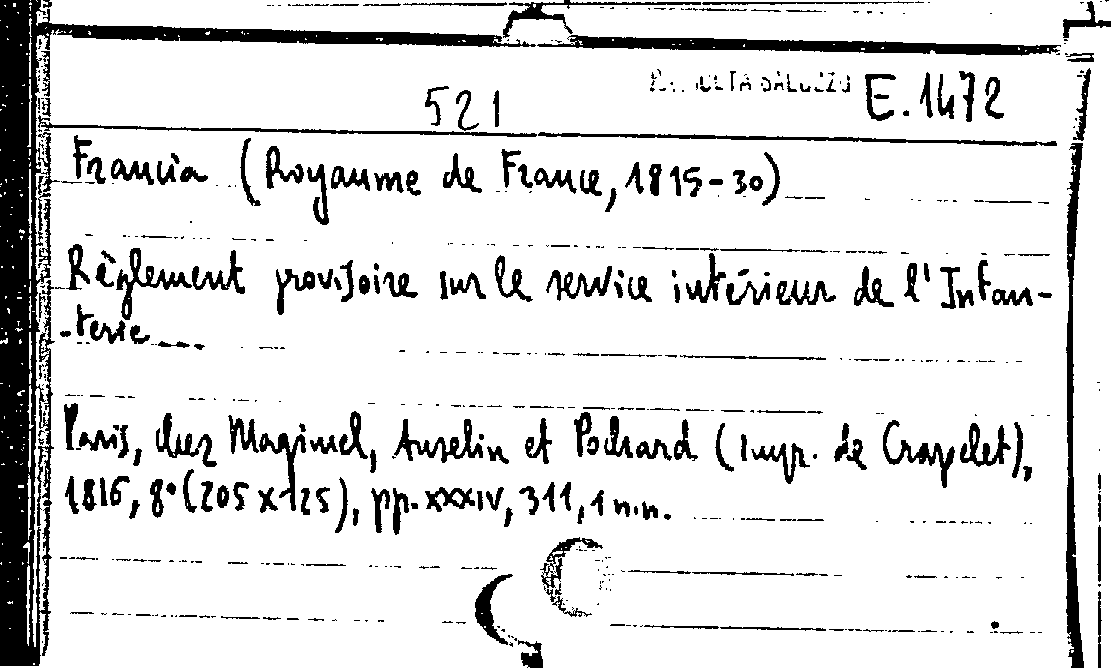 521 SALUZZO E.1472
Francia (Royaume de France, 1815-30)
Règlement provisoire sur le service intérieur de l'Infan-
-terie....
Paris, chez Magimel, Anselin et Pochard (Impr. de Crapelet),
1816, 8° (205 x 125), pp. XXXIV, 311, 1 n.n.